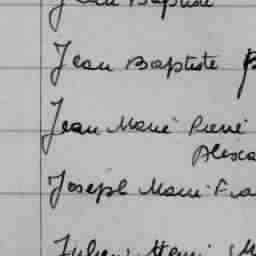 Jean Baptiste
Jean Baptiste
Jean Marie Pierre
Alexa
Joseph Marie Fra
Julien